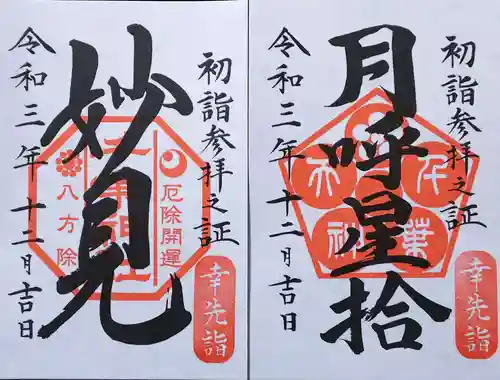 初詣参拝之証
妙見
令和三年十二月吉日
厄除開運
八方除
幸先詣
初詣参拝之証
月呼星拾
令和三年十二月吉日
幸先詣